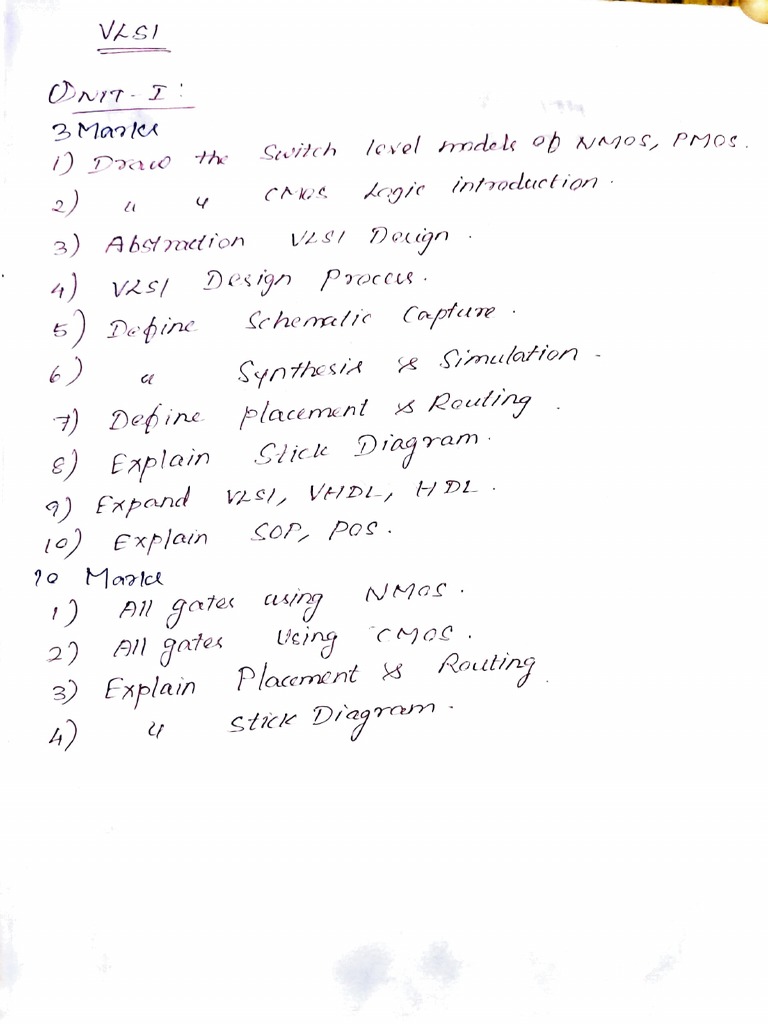 VLSI
UNIT - I :
3 Marks
1) Draw the Switch level models of NMOS, PMOS.
2) " " CMOS Logic introduction.
3) Abstraction VLSI Design.
4) VLSI Design Process.
5) Define Schematic Capture.
6) " Synthesis & Simulation.
7) Define placement & Routing.
8) Explain Stick Diagram.
9) Expand VLSI, VHDL, HDL.
10) Explain SOP, POS.
10 Marks
1) All gates using NMOS.
2) All gates Using CMOS.
3) Explain Placement & Routing.
4) " Stick Diagram.